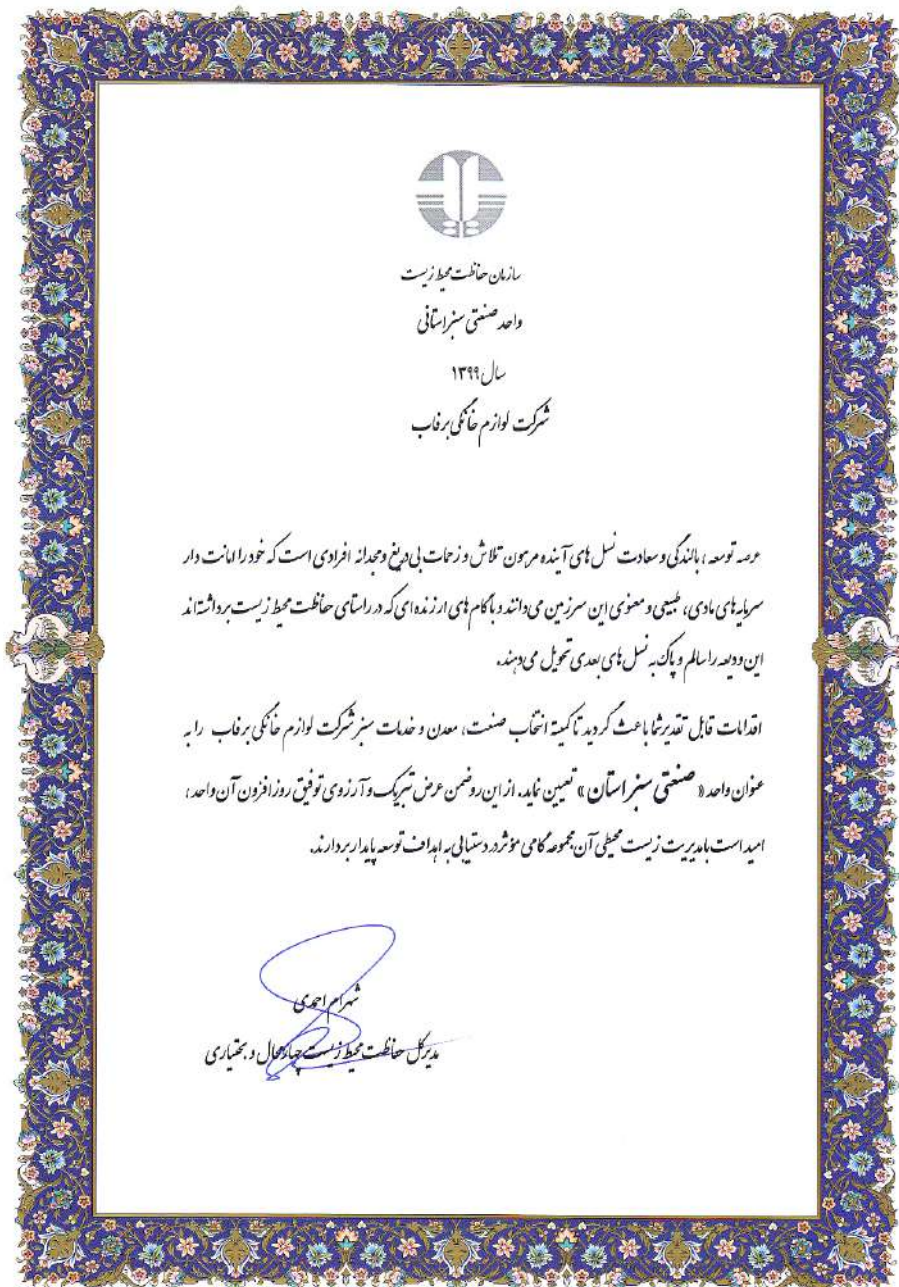 سازمان حفاظت محیط زیست
واحد صنعتی سبز استانی
سال ۱۳۹۹
شرکت لوازم خانگی برفاب
عرصه توسعه، بالندگی و سعادت نسل های آینده مرهون تلاش و زحمات بی دریغ و مجدانه افرادی است که خود را امانت دار
سرمایه های مادی، طبیعی و معنوی این سرزمین می دانند و با گام های ارزنده ای که در راستای حفاظت محیط زیست برداشته اند
این ودیعه را سالم و پاک به نسل های بعدی تحویل می دهند.
اقدامات قابل تقدیر شما باعث گردید تا کمیته انتخاب صنعت، معدن و خدمات سبز شرکت لوازم خانگی برفاب را به
عنوان واحد « صنعتی سبز استان » تعیین نماید. از این رو ضمن عرض تبریک و آرزوی توفیق روزافزون آن واحد،
امید است با مدیریت زیست محیطی آن مجموعه گامی مؤثر در دستیابی به اهداف توسعه پایدار بردارند.
شهرام احمدی
مدیرکل حفاظت محیط زیست چهارمحال و بختیاری